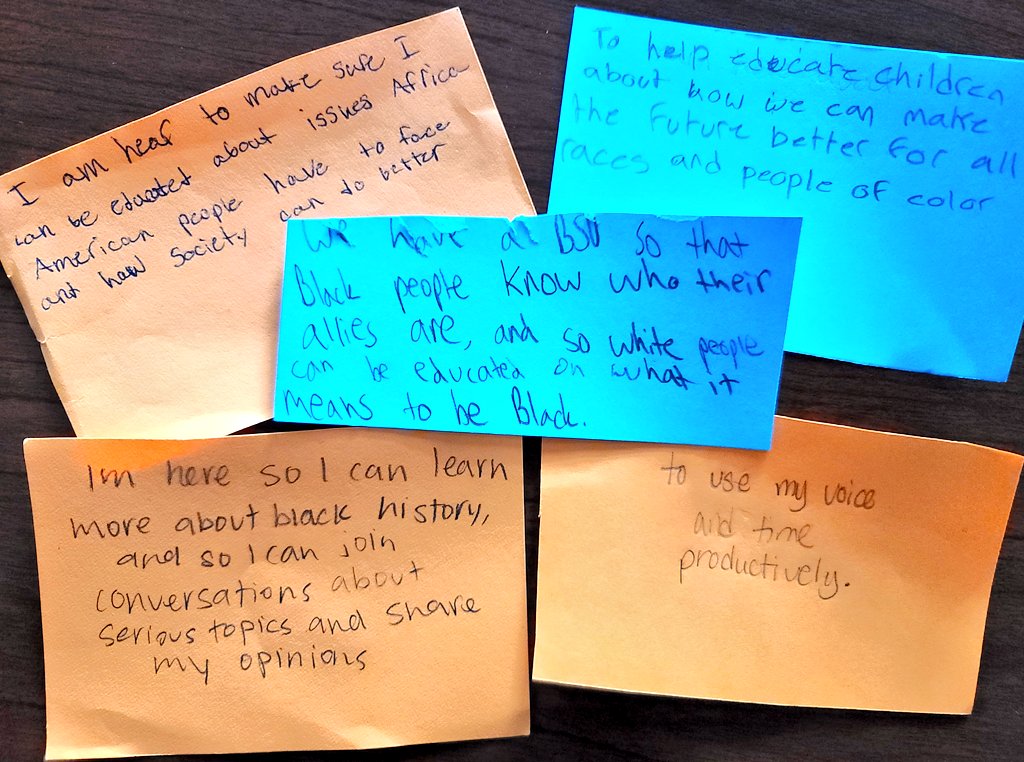 I am hear to make sure I
can be educated about issues Africa
American people have to face
and how society can do better
To help educate children
about how we can make
the future better for all
races and people of color
We have a BSU so that
Black people know who their
allies are, and so white people
can be educated on what it
means to be Black.
Im here so I can learn
more about black history,
and so I can join
conversations about
serious topics and share
my opinions
to use my voice
and time
productively.